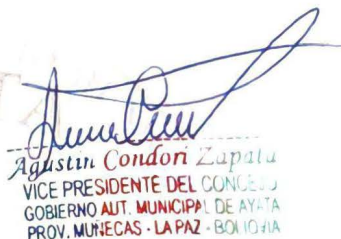 Agustin Condori Zapata
VICE PRESIDENTE DEL CONCEJO
GOBIERNO AUT. MUNICIPAL DE AYATA
PROV. MUÑECAS - LA PAZ - BOLIVIA